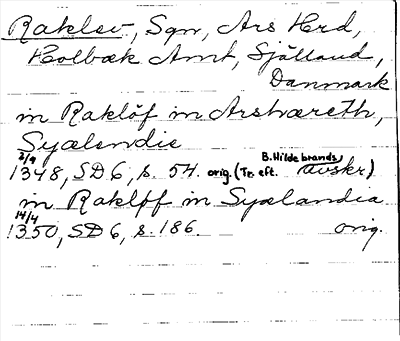 Raklev, Sqn, Ars Hrd,
Holbæk Amt, Sjålland,
Danmark
in Raklöf in Arshæreth,
Syælendie
2/9 1348, SD 6, s. 54. orig. (Tr. eft. B. Hildebrands avskr)
in Rakløff in Syælandia
14/4 1350, SD 6, s. 186. orig.